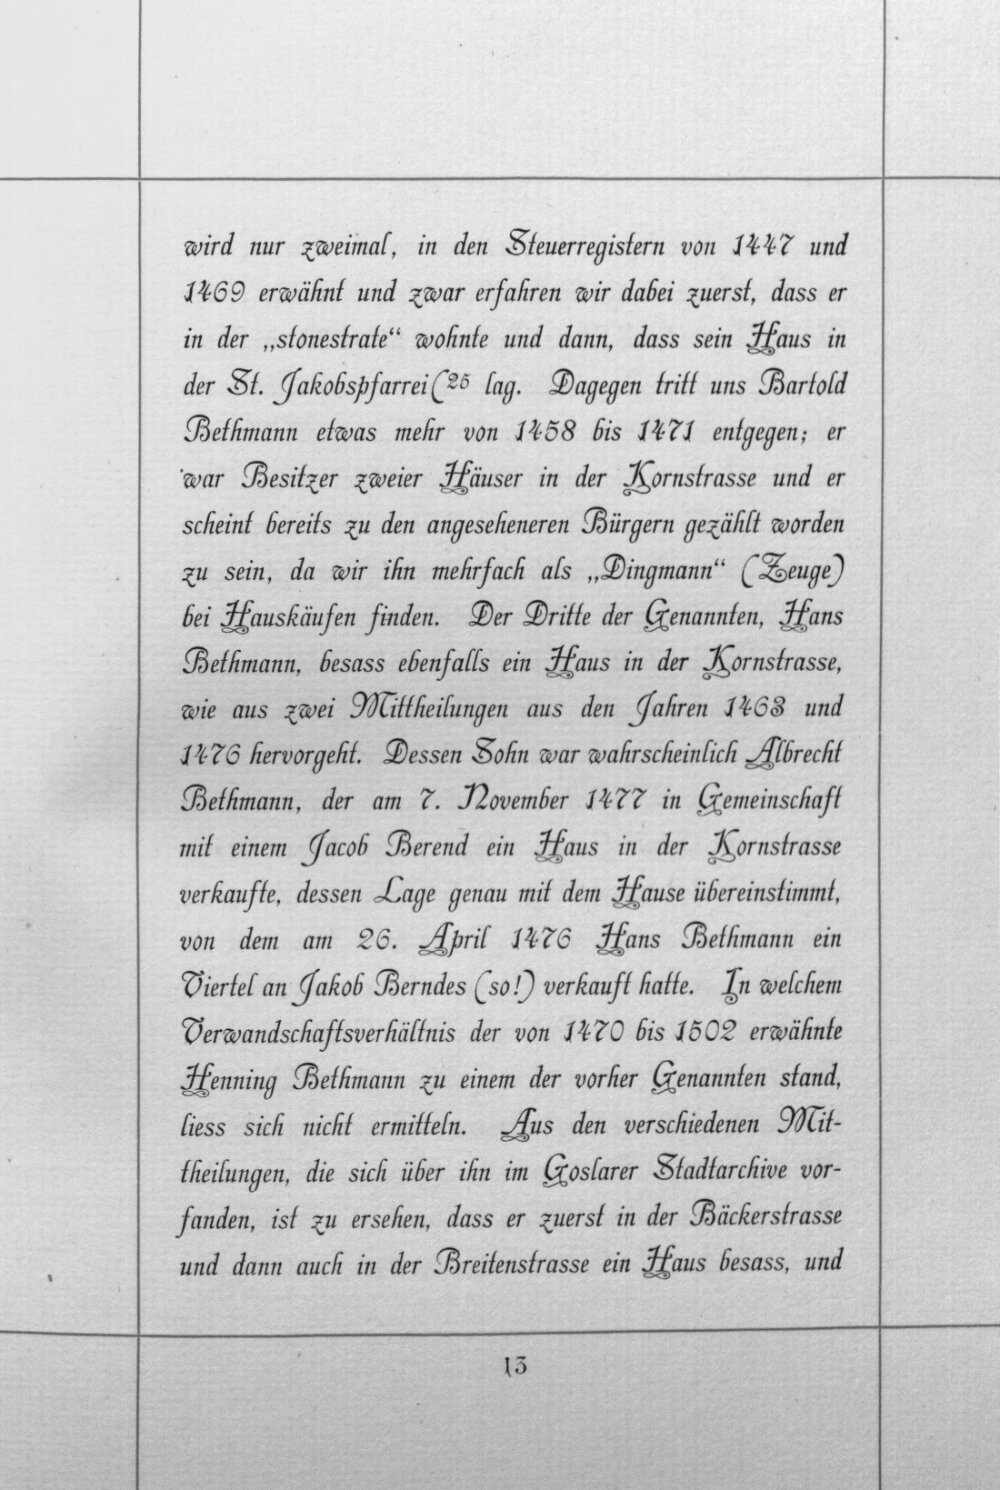 wird nur zweimal, in den Steuerregistern von 1447 und
1469 erwähnt und zwar erfahren wir dabei zuerst, dass er
in der „stonestrate“ wohnte und dann, dass sein Haus in
der St. Jakobspfarrei(25 lag. Dagegen tritt uns Bartold
Bethmann etwas mehr von 1458 bis 1471 entgegen; er
war Besitzer zweier Häuser in der Kornstrasse und er
scheint bereits zu den angeseheneren Bürgern gezählt worden
zu sein, da wir ihn mehrfach als „Dingmann“ (Zeuge)
bei Hauskäufen finden. Der Dritte der Genannten, Hans
Bethmann, besass ebenfalls ein Haus in der Kornstrasse,
wie aus zwei Mittheilungen aus den Jahren 1463 und
1476 hervorgeht. Dessen Sohn war wahrscheinlich Albrecht
Bethmann, der am 7. November 1477 in Gemeinschaft
mit einem Jacob Berend ein Haus in der Kornstrasse
verkaufte, dessen Lage genau mit dem Hause übereinstimmt,
von dem am 26. April 1476 Hans Bethmann ein
Viertel an Jakob Berndes (so!) verkauft hatte. In welchem
Verwandschaftsverhältnis der von 1470 bis 1502 erwähnte
Henning Bethmann zu einem der vorher Genannten stand,
liess sich nicht ermitteln. Aus den verschiedenen Mit-
theilungen, die sich über ihn im Goslarer Stadtarchive vor-
fanden, ist zu ersehen, dass er zuerst in der Bäckerstrasse
und dann auch in der Breitenstrasse ein Haus besass, und
13